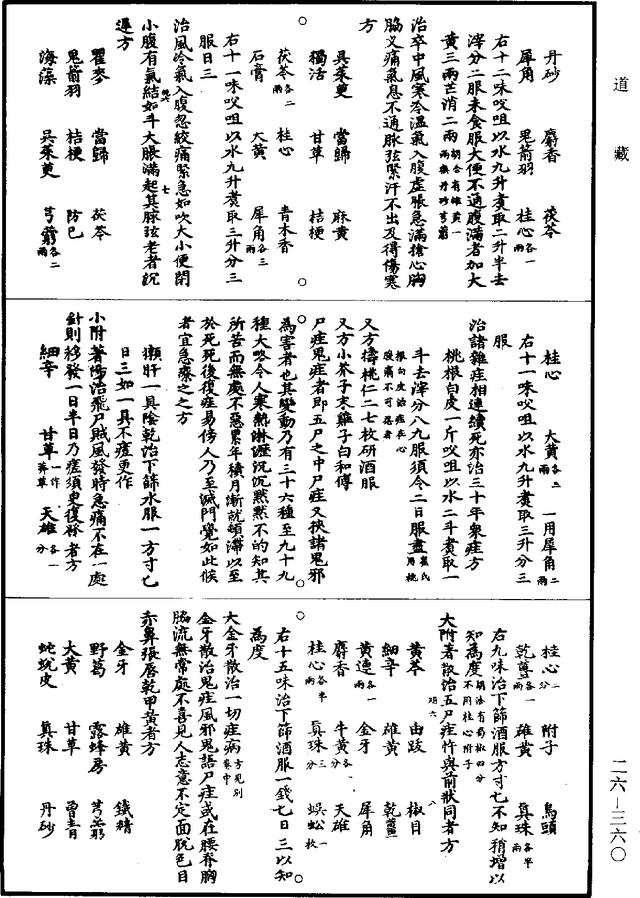 道藏
丹砂 麝香 茯苓
犀角 鬼箭羽 桂心各一兩
右十二味㕮咀以水九升煮取二升半去
滓分二服未食服大便不通腹滿者加大
黃三兩芒消二兩胡合有雄黃一兩無丹砂芎藭
治卒中風寒冷溫氣入腹虛脹急滿搶心胸
脇叉痛氣息不通脉弦緊汗不出及得傷寒
方
吳茱萸 當歸 麻黃
獨活 甘草 桔梗
茯苓各二兩 桂心 青木香
石膏 大黃 犀角各三兩
右十一味㕮咀以水九升煮取三升分三
服日三
治風冷氣入腹忽絞痛緊急如吹大小便閉
小腹有氣結如斗大脹滿起其脉弦老者沉
遲方
瞿麥 當歸 茯苓
鬼箭羽 桔梗 防己
海藻 吳茱萸 芎藭各二兩
桂心 大黃各二兩 一用犀角二兩
右十一味㕮咀以水九升煮取三升分三
服
治諸雜疰相連續死亦治三十年衆疰方
桃根白皮一斤㕮咀以水二斗煮取一
斗去滓分八九服須令二日服盡崔氏用桃
根白皮治疰在心腹痛不可忍者
又方擣桃仁二七枚研酒服
又方小芥子末雞子白和傅
尸疰鬼疰者即五尸之中尸疰又挾諸鬼邪
為害者也其變動乃有三十六種至九十九
種大略令人寒熱淋瀝沉沉默默不的知其
所苦而無處不惡累年積月漸就頓滯以至
於死死後復疰易傍人乃至滅門覺如此候
者宜急療之之方
獺肝一具陰乾治下篩水服一方寸匕
日三如一具不瘥更作
小附著散治飛尸賊風發時急痛不在一處
針則移發一日半日乃瘥須臾復發者方
細辛 甘草一作莽草 天雄各一分
桂心二分 附子 烏頭
乾薑各一兩 雄黃 真珠各半兩
右九味治下篩酒服方寸匕不知稍增以
知為度胡洽有蜀椒四分不用桂心附子
大附著散治五尸疰忤與前狀同者方
黃芩 由跋 椒目
細辛 雄黃 乾薑
黃連各一兩 金牙 犀角
麝香 牛黃各一分 天雄
桂心各半兩 真珠三分 蜈蚣一枚
右十五味治下篩酒服一錢匕日三以知
為度
大金牙散治一切疰病方死別家中
金牙散治鬼疰風邪鬼語尸疰或在腰脊胸
脇流無常處不喜見人志意不定面脫色目
赤鼻張唇乾甲黃者方
金牙 雄黃 鐵精
野葛 露蜂房 芎藭
大黃 甘草 曾青
蛇蛻皮 真珠 丹砂
二六—三六〇